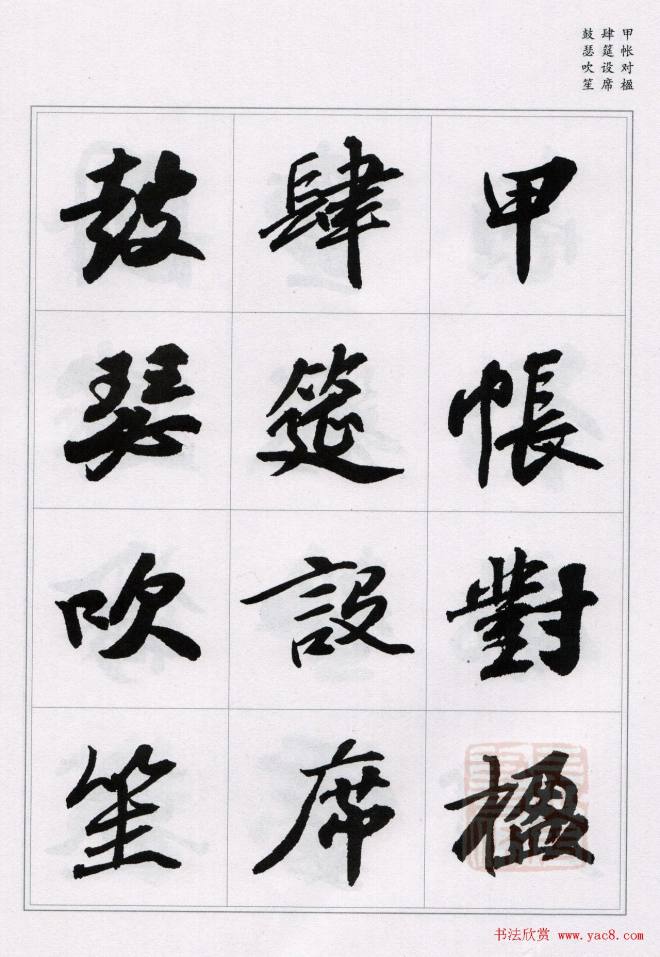 甲帐对楹
肆筵设席
鼓瑟吹笙
甲帳對楹
肆筵設席
鼓瑟吹笙
书法欣赏 www.yac8.com